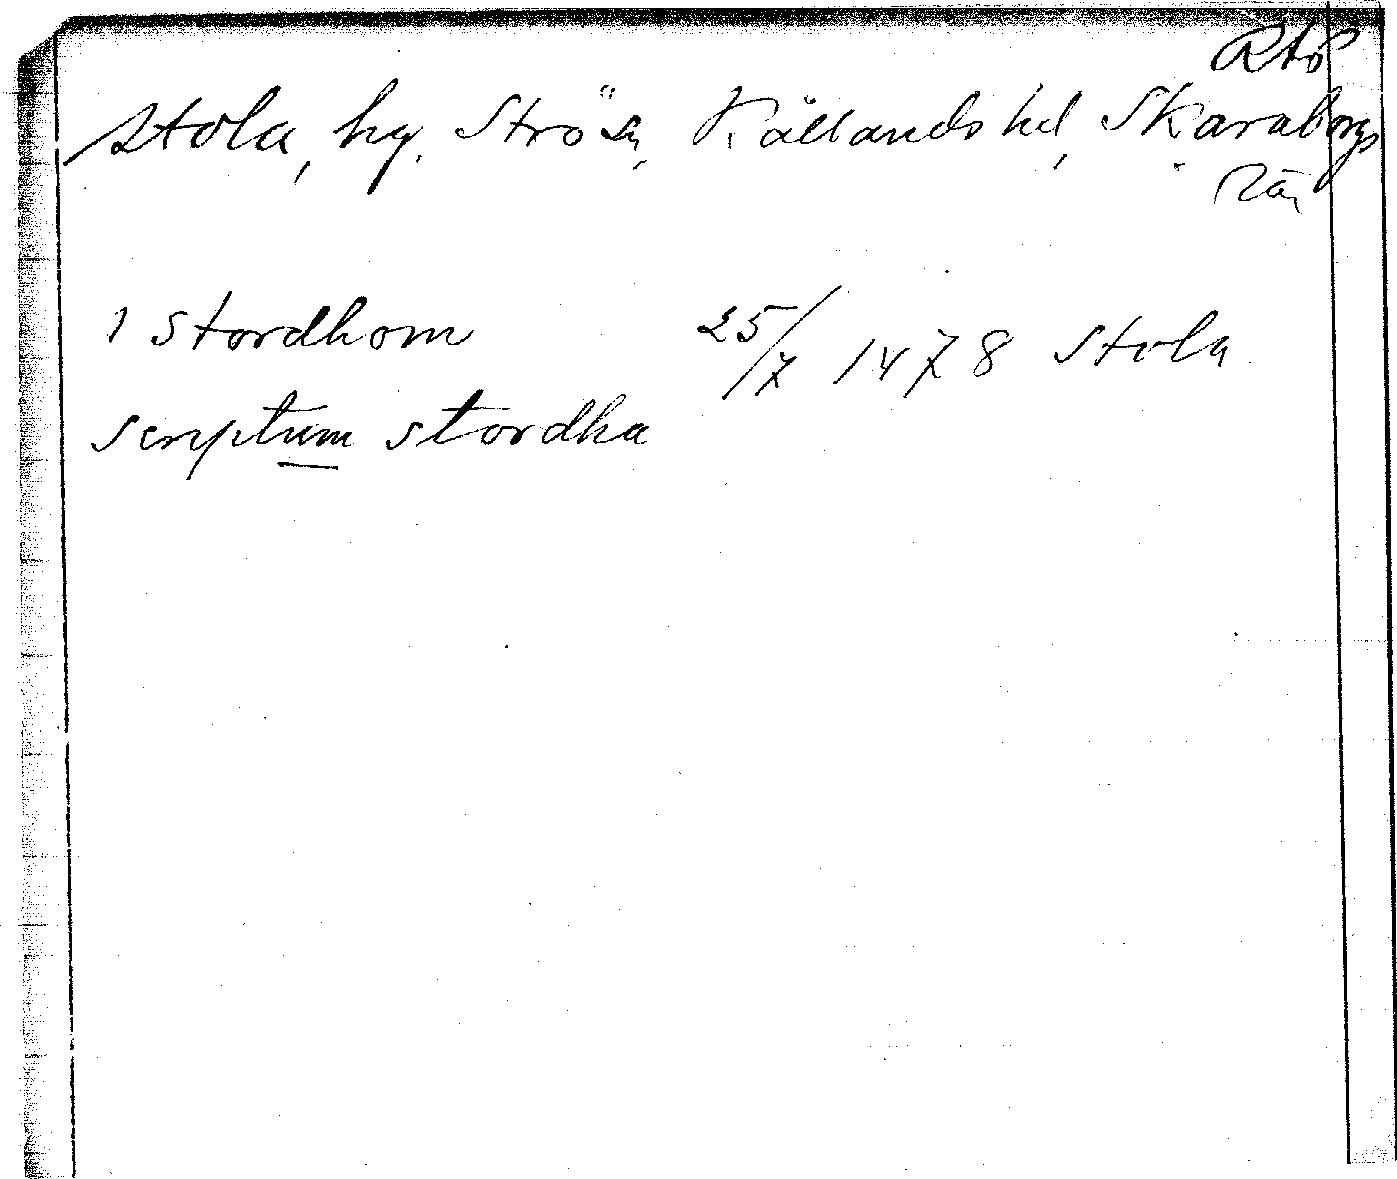 Stola, hg, Strö sn, Kållands hd, Skaraborgs
län
1 stordhom 25/7 1478 Stola
scriptum stordha